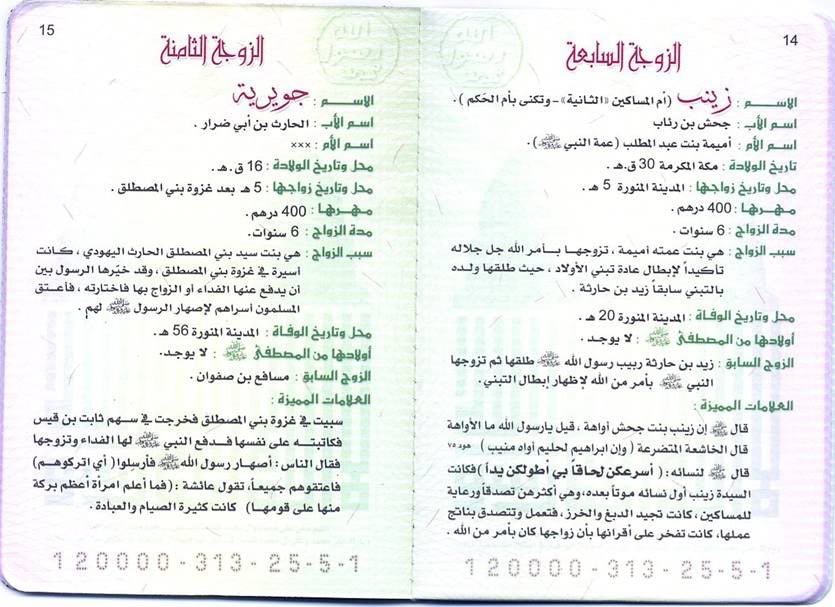 14
الزوجة السابعة
الاسم : زينب (أم المساكين «الثانية» - وتكنى بأم الحكم ) .
اسم الأب : جحش بن رئاب
اسم الأم : أميمة بنت عبد المطلب (عمة النبي ﷺ) .
تاريخ الولادة : مكة المكرمة 30 ق.هـ .
محل وتاريخ زواجها : المدينة المنورة 5 هـ .
مهرها : 400 درهم .
مدة الزواج : 6 سنوات .
سبب الزواج : هي بنت عمته أميمة ، تزوجها بأمر الله جل جلاله
تأكيداً لإبطال عادة تبني الأولاد ، حيث طلقها ولده
بالتبني سابقاً زيد بن حارثة .
محل وتاريخ الوفاة : المدينة المنورة 20 هـ .
أولادها من المصطفى ﷺ : لا يوجد .
الزوج السابق : زيد بن حارثة ربيب رسول الله ﷺ طلقها ثم تزوجها
النبي ﷺ بأمر من الله لإظهار إبطال التبني .
العلامات المميزة :
قال ﷺ إن زينب بنت جحش أواهة ، قيل يارسول الله ما الأواهة
قال الخاشعة المتضرعة ( وإن ابراهيم لحليم أواه منيب ) هود ٧٥
قال ﷺ لنسائه : ( أسرعكن لحاقاً بي أطولكن يداً ) فكانت
السيدة زينب أول نسائه موتاً بعده، وهي أكثرهن تصدقاً ورعاية
للمساكين ، كانت تجيد الدبغ والخرز ، فتعمل وتتصدق بناتج
عملها، كانت تفخر على أقرانها بأن زواجها كان بأمر من الله .
120000-313-25-5-1
15
الزوجة الثامنة
الاسم : جويرية
اسم الأب : الحارث بن أبي ضرار .
اسم الأم : ×××
محل وتاريخ الولادة : 16 ق.هـ .
محل وتاريخ زواجها : 5 هـ بعد غزوة بني المصطلق .
مهرها : 400 درهم .
مدة الزواج : 6 سنوات .
سبب الزواج : هي بنت سيد بني المصطلق الحارث اليهودي ، كانت
أسيرة في غزوة بني المصطلق ، وقد خيّرها الرسول بين
أن يدفع عنها الفداء أو الزواج بها فاختارته ، فأعتق
المسلمون أسراهم لإصهار الرسول ﷺ لهم .
محل وتاريخ الوفاة : المدينة المنورة 56 هـ .
أولادها من المصطفى ﷺ : لا يوجد .
الزوج السابق : مسافع بن صفوان .
العلامات المميزة :
سبيت في غزوة بني المصطلق فخرجت في سهم ثابت بن قيس
فكاتبته على نفسها فدفع النبي ﷺ لها الفداء وتزوجها
فقال الناس : أصهار رسول الله ﷺ فأرسِلوا( أي اتركوهم )
فاعتقوهم جميعاً، تقول عائشة : (فما أعلم امرأة أعظم بركة
منها على قومها) كانت كثيرة الصيام والعبادة .
120000-313-25-5-1